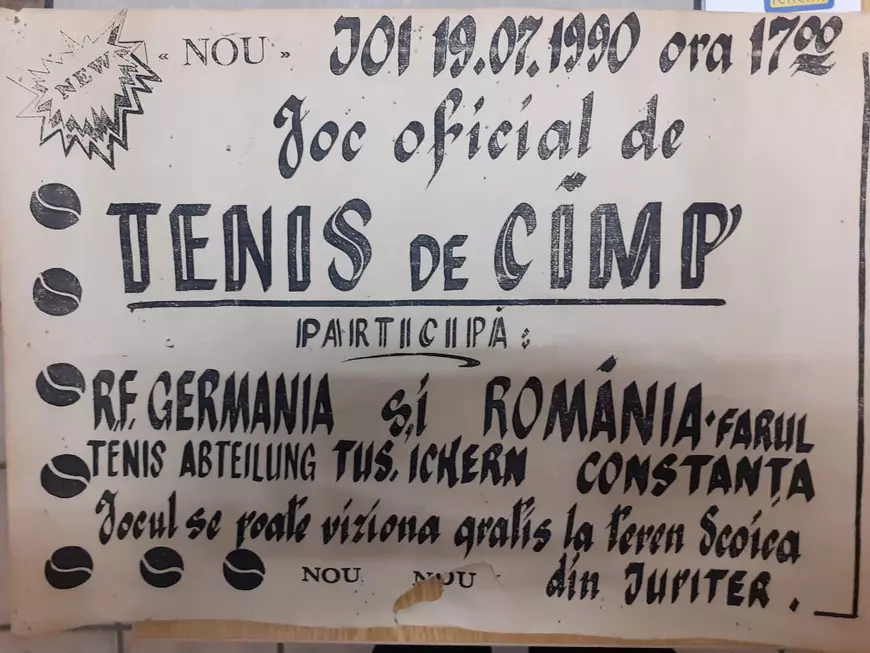 NEW « NOU » JOI 19.07.1990 ora 17⁰⁰
Joc oficial de
TENIS DE CÎMP
PARTICIPĂ:
R.F. GERMANIA ȘI ROMÂNIA·FARUL
TENIS ABTEILUNG TUS. ICKERN CONSTANȚA
Jocul se poate viziona gratis la teren Scoica
NOU NOU din JUPITER.